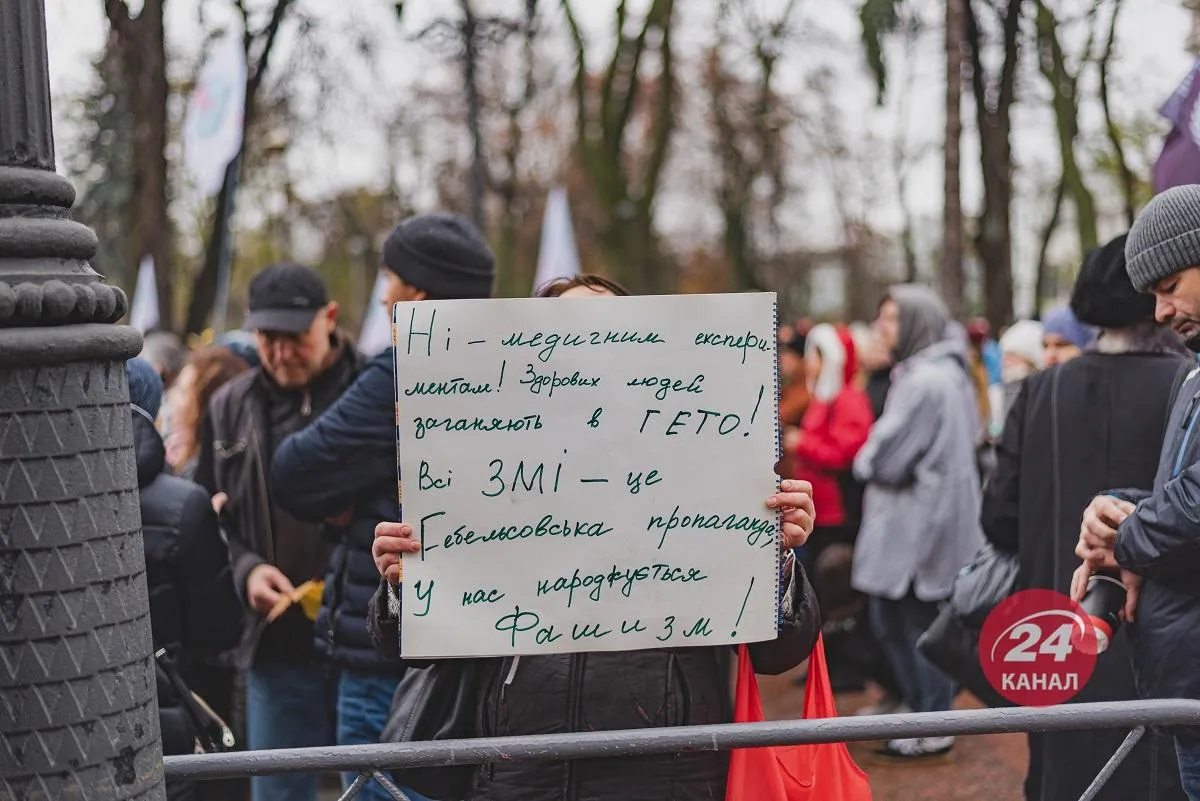 Ні - медичним експери-
ментам! Здорових людей
заганяють в ГЕТО!
Всі ЗМІ - це
Гебельсовська пропаганда,
У нас народжується
Фашизм!
24
КАНАЛ